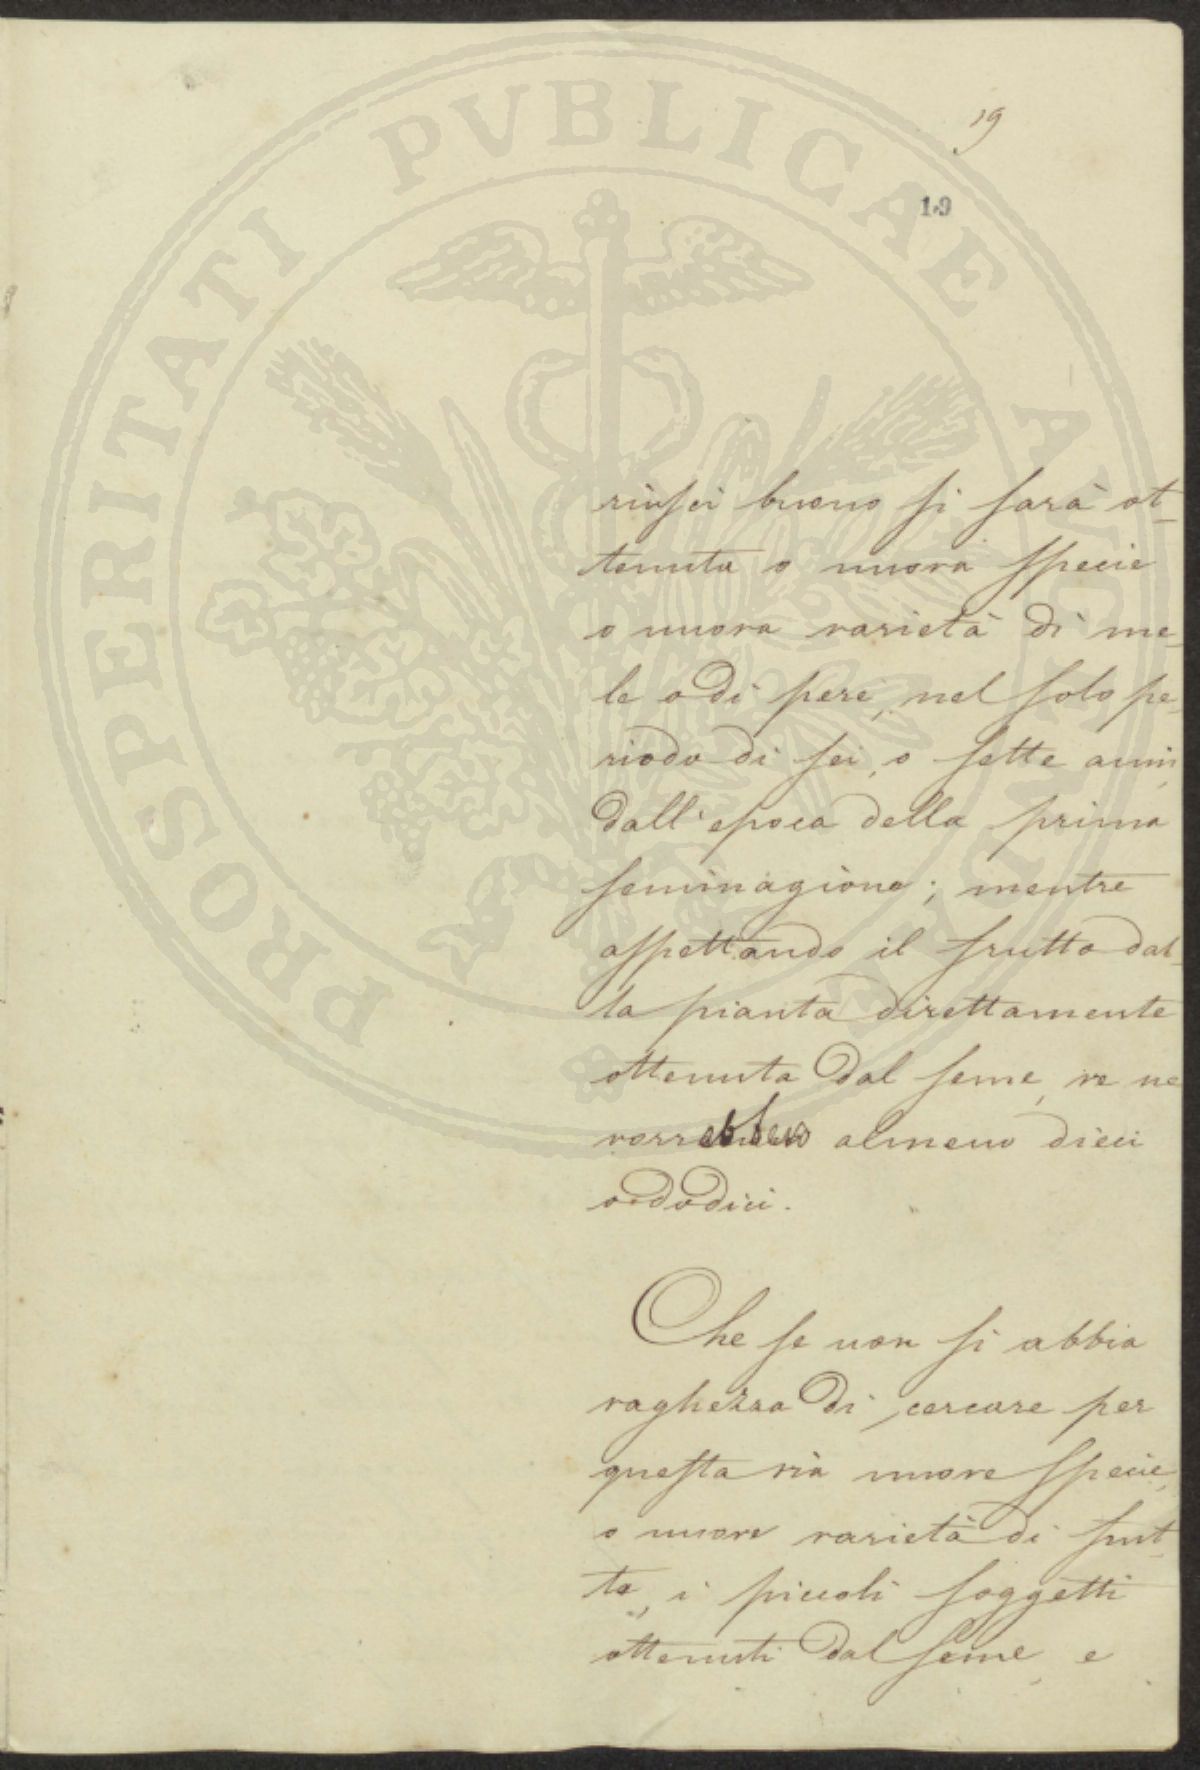 19
19
riusci buono si sarà ot-
tenuta o nuova specie
o nuova varietà di me-
le o di pere, nel solo pe-
riodo di sei, o sette anni,
dall'epoca della prima
seminagione; mentre
aspettando il frutto dal-
la pianta direttamente
ottenuta dal seme, ve ne
vorrebbero almeno dieci
o dodici.
Che se non si abbia
vaghezza di cercare per
questa via nuove specie,
o nuove varietà di frut-
ta, i piccoli soggetti
ottenuti dal seme, e
PROSPERITATI PVBLICAE AVGENDAE